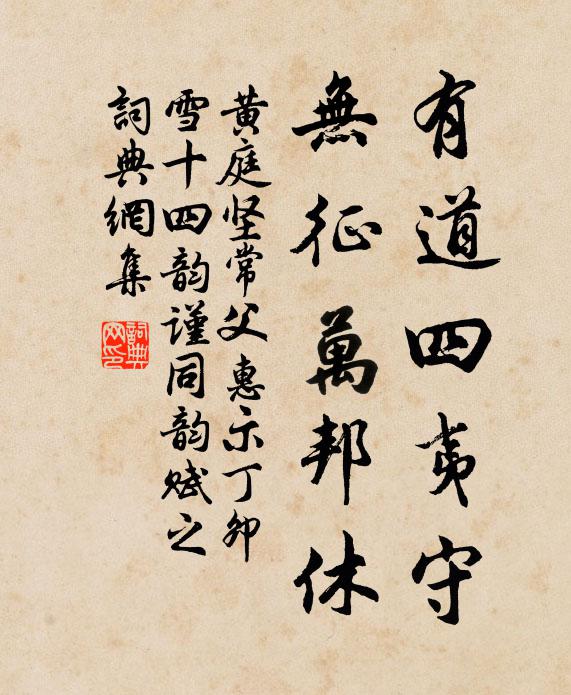 有道四夷守
無征萬邦休
黄庭坚常父惠示丁卯
雪十四韵谨同韵赋之
詞典網集
詞典
网印